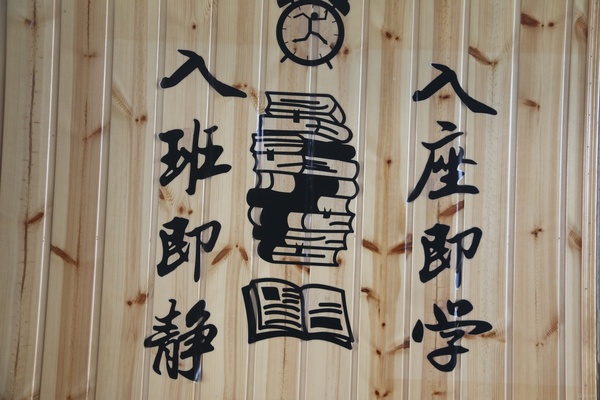 入班即静
入座即学